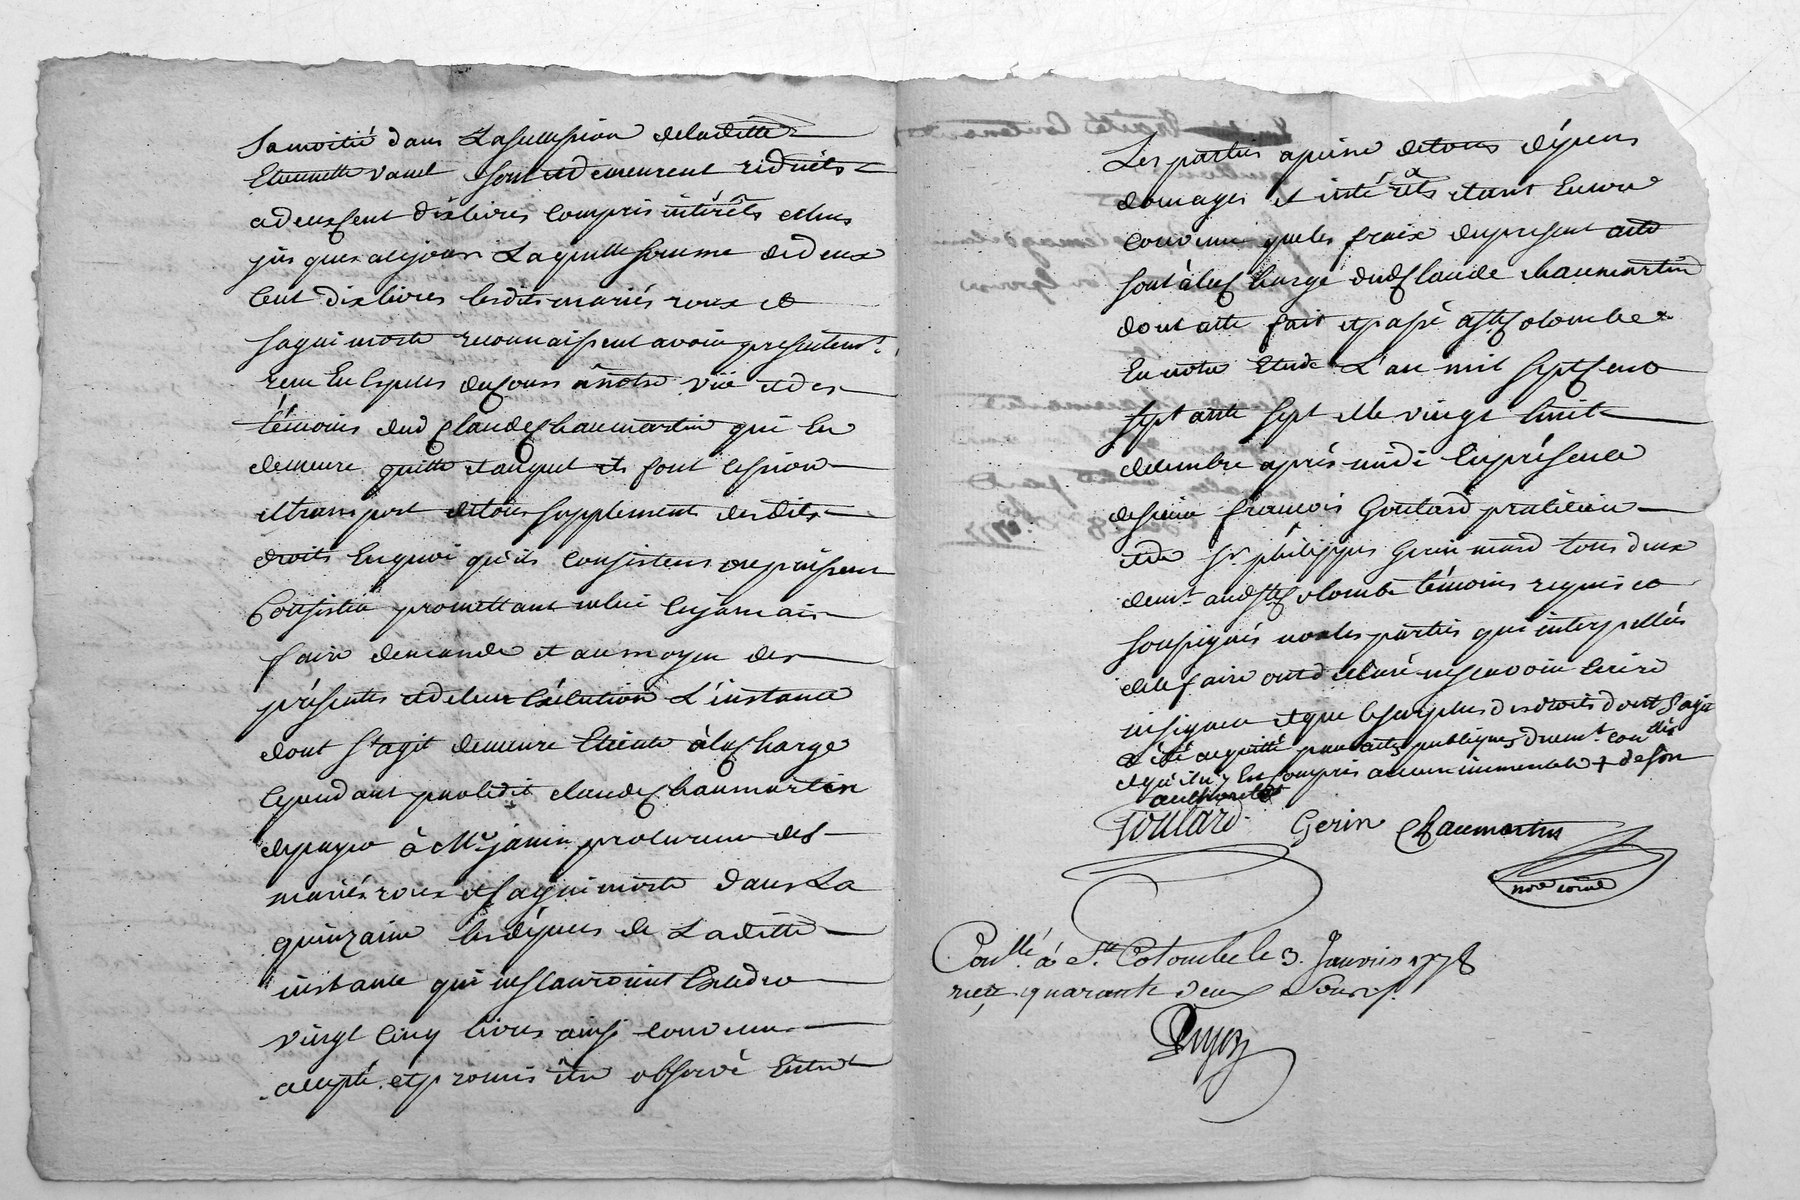 sa moitié dans La succession de laditte
Etiennette vanel sont et demeurent réduits
a deux Cent dix livres compris intérêts echus
jusques à ce jour Laquelle somme de deux
Cent dix livres lesdits mariés roux et
saquimorte reconnaissent avoir présentemt.
reçu En Espèces du Cours à notre vüe et des
témoins dud Claude Chaumartin qui En
demeure quitte et auquel ils font cession
et transport de tous supplements desdits
droits En quoi qu'ils Consistent ou puissent
Consister promettant ne lui en jamais
faire demande et au moyen des
présentes et de leur Exécution L'instance
dont S'agit demeure Eteinte à la Charge
Cependant par ledit claude Chaumartin
de payer à Mr. janin procureur des
mariés roux et saquimorte dans La
quinzaine les dépens de Laditte
instance qui ne sauroient Excéder
vingt cinq livres ainsi convenu
accepté et promis être observé Entre
Les parties a peine de tous dépens
domages et intérêts etant Encore
convenu que les fraix du present acte
sont à la Charge dud Claude chaumartin
dont acte fait et passé a Ste Colombe
En notre Etude L'an mil sept Cent
septante sept et le vingt huit
decembre après midi En présence
de sieur françois Goutard praticien
et de sr. philippes Gerin mard tous deux
demt. aud Ste Colombe témoins requis et
soussignés non les parties qui interpellées
de le faire ont déclaré ne scavoir Ecrire
ni signer et que le surplus des droits dont s'agit
a été acquitté par actes publiques duemt. conllés
et qu'il n'y Est compris aucun immeuble + de son
authorité
Goutard Gerin Chaumartin
nore royal
Conllé. à Ste. Colombe le 3. Janvier 1778
reçu quarante deux Sous